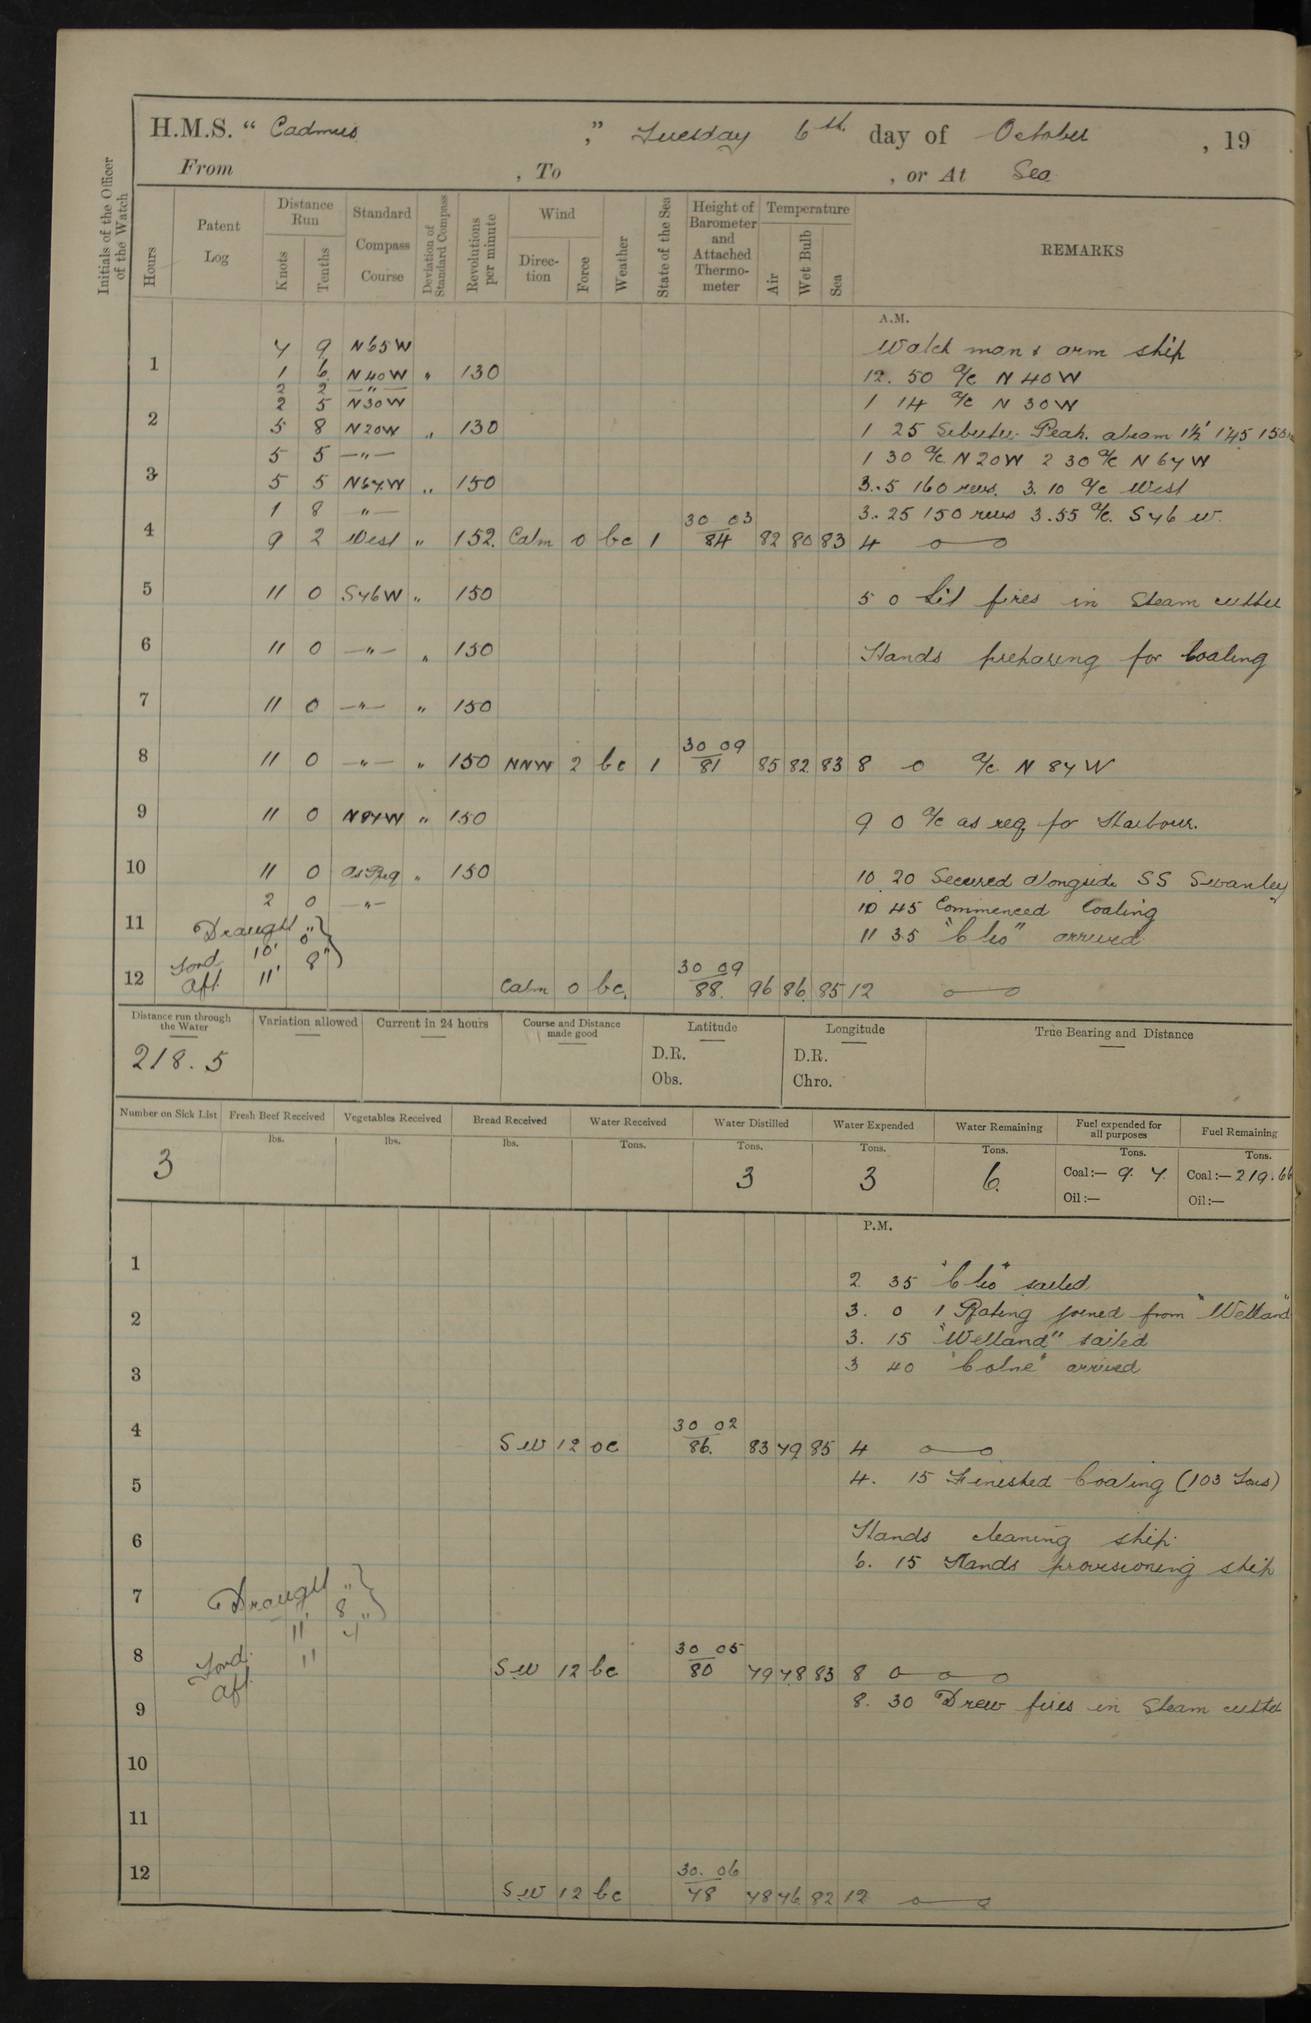 H.M.S. " Cadmus ," Tuesday 6th day of October , 19
From , To , or At Sea
Initials of the Officer of the Watch
Hours Patent Log Distance Run Knots Tenths Standard Compass Course Deviation of Standard Compass Revolutions per minute Wind Direction Force Weather State of the Sea Height of Barometer and Attached Thermometer Temperature Air Wet Bulb Sea REMARKS
A.M.
7 9 N65W Watch man & arm ship
1 1 6 N40W " 130 12. 50 a/c N 40 W
2 2 —"—
2 5 N30W 1 14 a/c N 30 W
2 5 8 N20W " 130 1 25 Peak. abeam 1½' 1.45 150
5 5 —"— 1 30 a/c N 20W 2 30 a/c N 67 W
3 5 5 N67W " 150 3..5 160 revs. 3.10 a/c West
1 8 —"— 3.25 150 revs 3.55 a/c. S 76 W.
4 9 2 West " 152. Calm 0 bc 1 30 03 / 84 82 80 83 4
5 11 0 S76W " 150 5 0 Lit fires in Steam cutter
6 11 0 —"— " 150 Hands preparing for Coaling
7 11 0 —"— " 150
8 11 0 —"— " 150 NNW 2 bc 1 30 09 / 81 85 82 83 8 0 a/c N 87 W
9 11 0 N87W " 150 9 0 a/c as req. for Harbour.
10 11 0 as Req " 150 10 20 Secured alongside SS Swanley
2 0 —"— 10 45 Commenced Coaling
11 Draught 11 35 "Clio" arrived
Ford 10' 0"
12 Aft. 11' 8" Calm 0 bc. 30 09 / 88. 96 86. 85 12
Distance run through the Water Variation allowed Current in 24 hours Course and Distance made good Latitude Longitude True Bearing and Distance
218.5 D.R. D.R.
Obs. Chro.
Number on Sick List Fresh Beef Received Vegetables Received Bread Received Water Received Water Distilled Water Expended Water Remaining Fuel expended for all purposes Fuel Remaining
lbs. lbs. lbs. Tons. Tons. Tons. Tons. Tons. Tons.
3 3 3 6. Coal :— 9. 7. Coal :— 219.66
Oil :— Oil :—
P.M.
1
2 35 "Clio" sailed
2 3. 0 1 Rating joined from "Welland"
3. 15 "Welland" sailed
3 3 40 "Colne" arrived
4 SW 12 oc 30 02 / 86. 83 79 85 4
5 4. 15 Finished Coaling (103 Tons)
6 Hands cleaning ship.
6. 15 Hands provisioning ship
7 Draught
Ford. 11' 8"
8 Aft. 11 7" SW 12 bc 30 05 / 80 79 78 83 8
9 8. 30 Drew fires in Steam cutter
10
11
12 SW 12 bc 30. 06 / 78 78 76 82 12